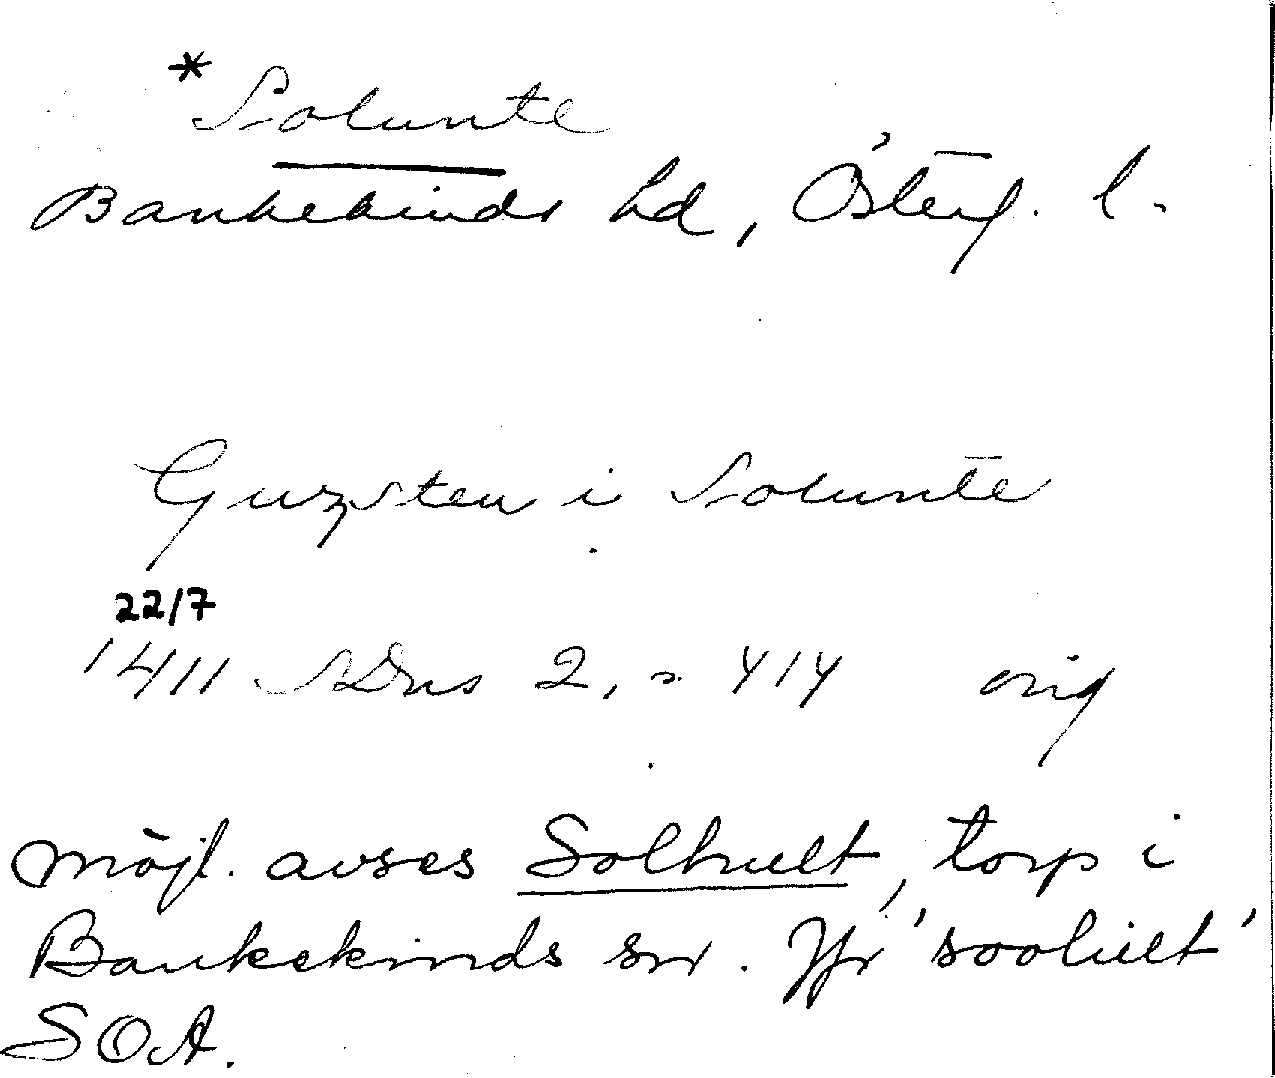 *Solunte
Bankekinds hd, Österg. l.
Guzsten i Solunte
22/7
1411 SDns 2, s. 414 orig
möjl. avses Solhult, torp i
Bankekinds sn. Jfr 'soolult'
SOA.